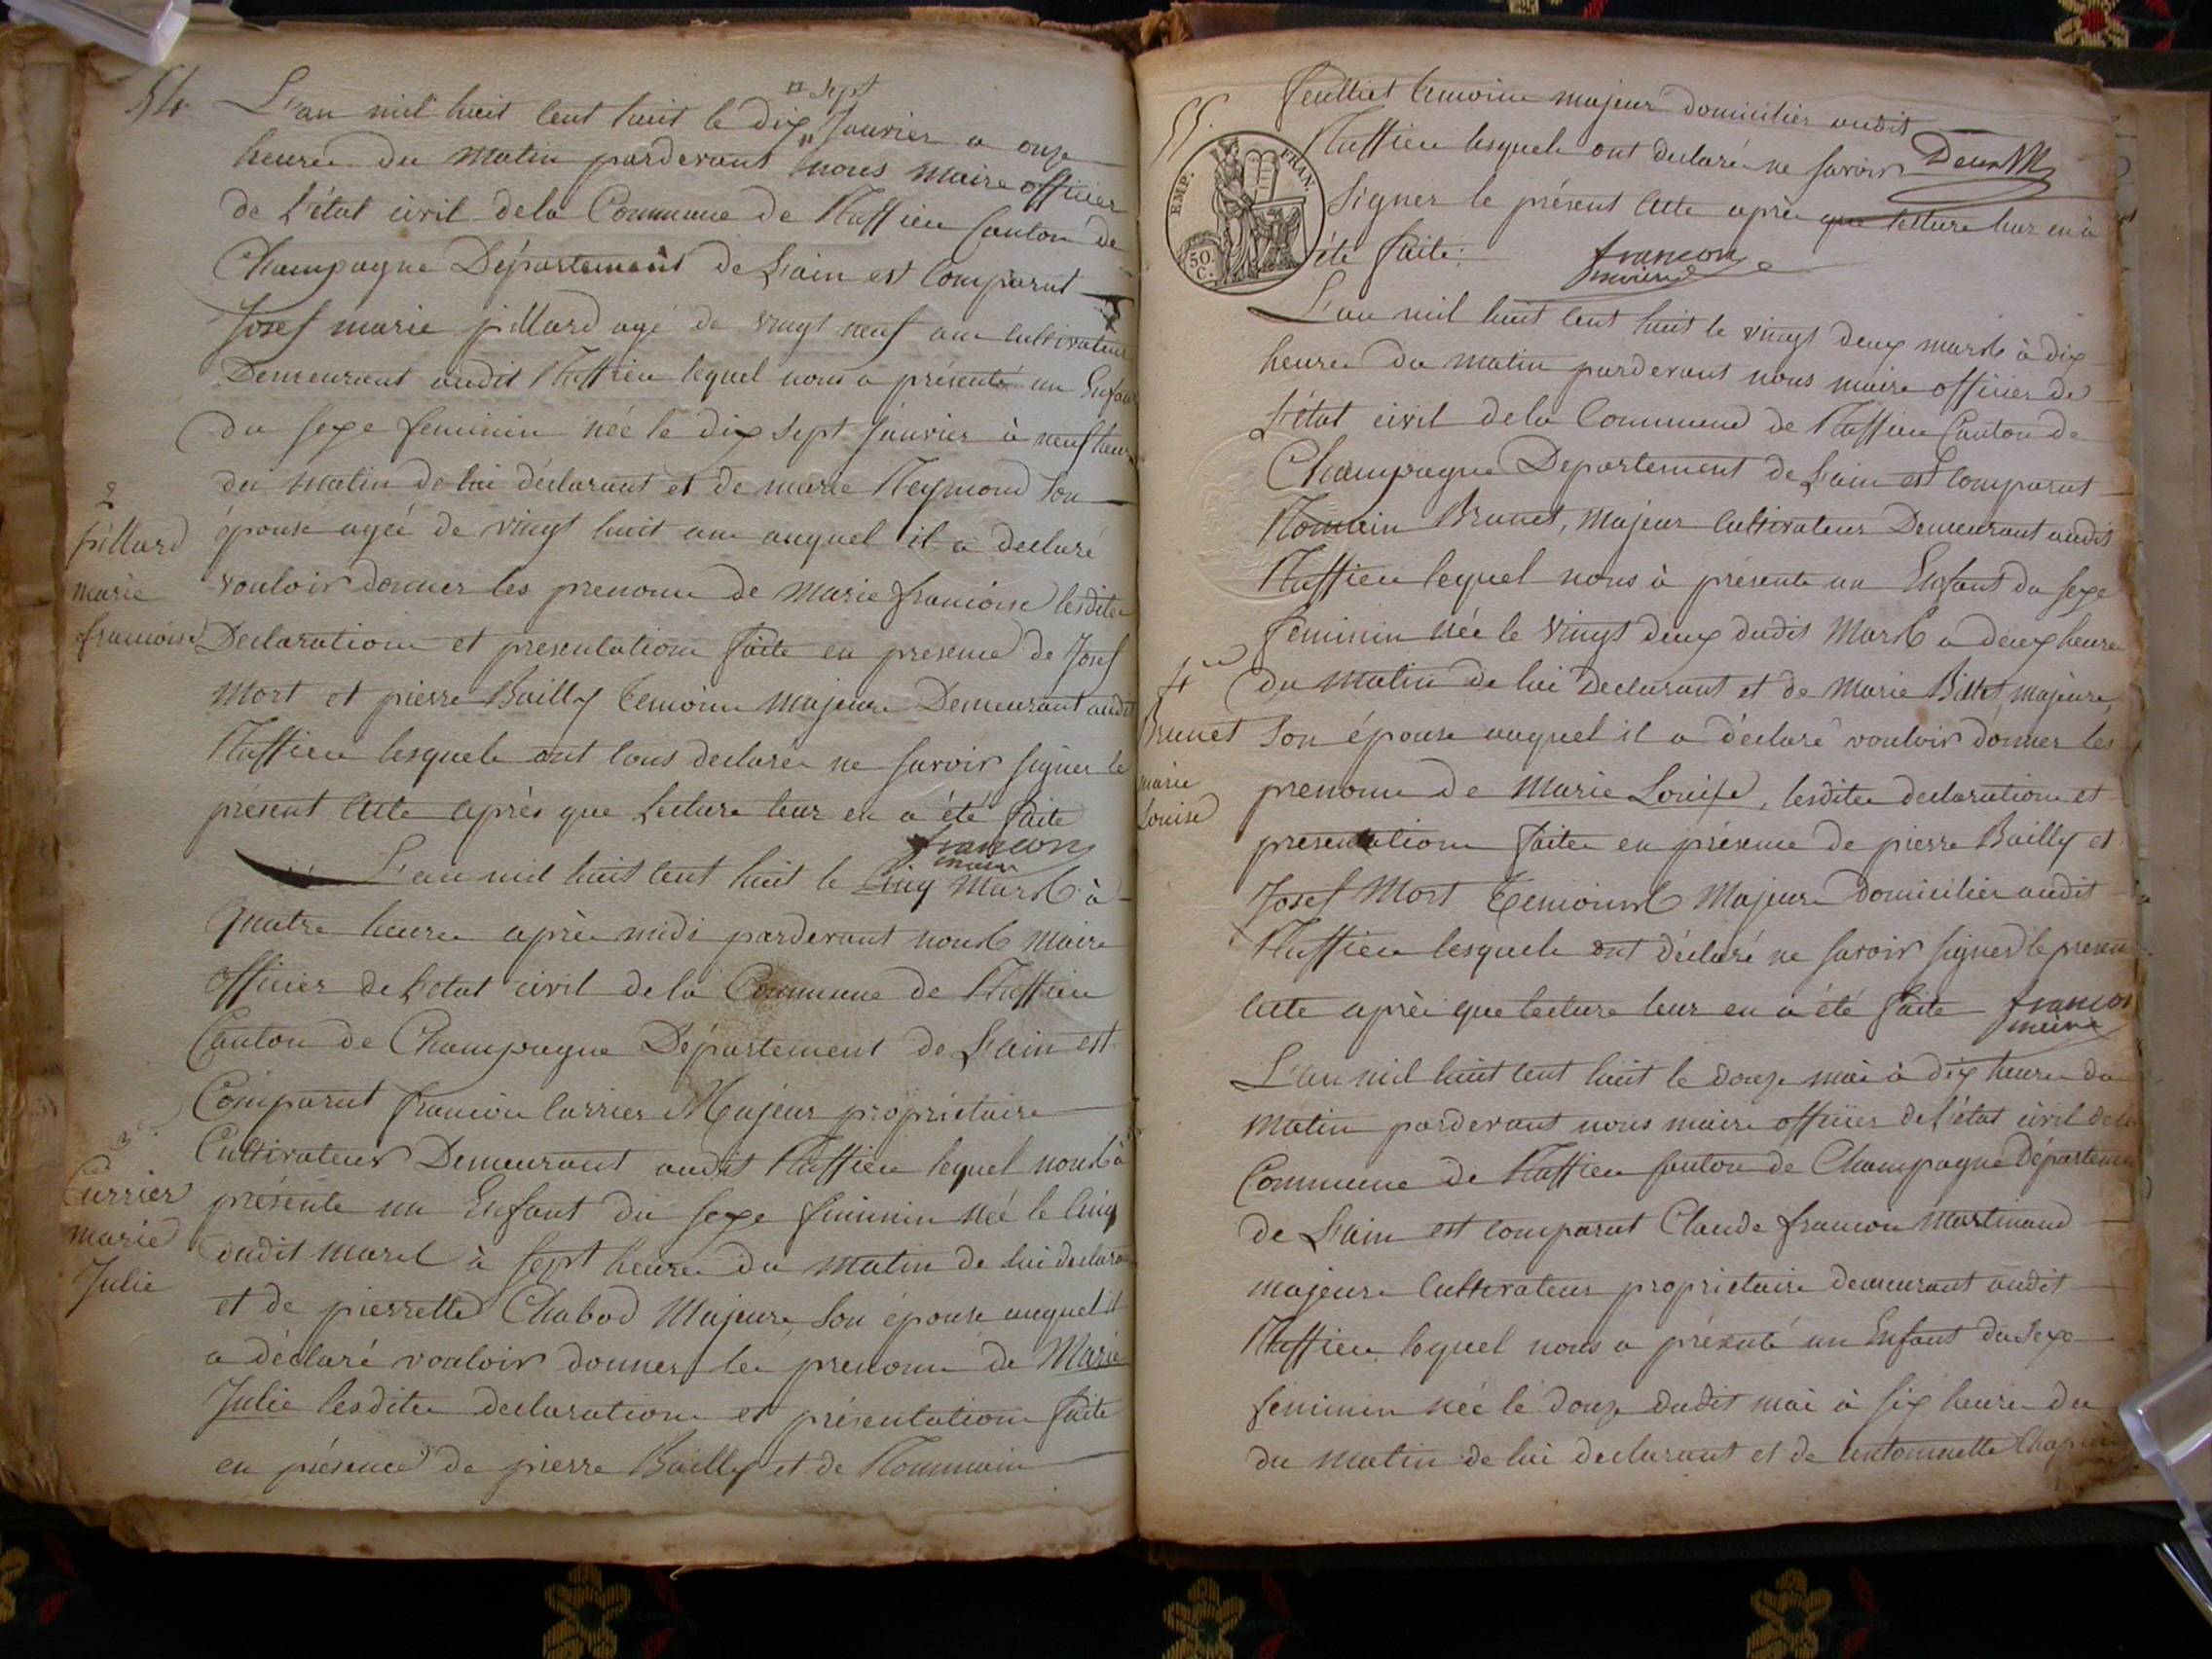 54.
L'an mil huit cent huit le dix " Janvier a onze
" sept
heures du matin pardevant nous maire officier
de L'état civil dela Commune de Ruffieu Canton de
Champagne Département de L'ain est Comparut
Josef marie pillard agé de vingt neuf ans cultivateur
Demeurant audit Ruffieu lequel nous a présenté un Enfant
du sexe feminin née le dix sept Janvier à neuf heures
du matin de lui déclarant et de marie Reymond Son
épouse agée de vingt huit ans auquel il a declaré
vouloir donner les prenoms de Marie francoise lesdites
Declarations et presentations faite en presence de Josef
Mort et pierre Bailly temoins majeurs Demeurant audit
Ruffieu lesquels ont tous declarés ne savoir signer le
présent acte après que Lecture leur en a été faite
francon
maire
2
pillard
marie
francoise
L'an mil huit cent huit le Cinq Mars à
quatre heures après midi pardevant nous Maire
officier de L'etat civil dela Commune de Ruffieu
Canton de Champagne Département de L'ain est
Comparut francois Carrier Majeur proprietaire
Cultivateur Demeurant audit Ruffieu lequel nous à
présenté un Enfant du sexe feminin née le Cinq
dudit mars à sept heures du matin de lui declarant
et de pierrette Chabod Majeure Son épouse auquel il
a déclaré vouloir donner les prenoms de Marie
Julie lesdites declarations et présentations faite
en présence de pierre Bailly et de Rommain
3
Carrier
marie
Julie
55.
EMP. FRAN.
50 C.
feulliet temoins majeurs domiciliés audit
Ruffieu lesquels ont declarés ne savoir
Signer le présent acte après que lecture leur en à
été faite. francon
maire
L'an mil huit cent huit le vingt deux mars à dix
heures du matin pardevant nous maire officier de
L'état civil dela Commune de Ruffieu Canton de
Champagne Departement de L'ain est Comparut
Romain Brunet, majeur Cultivateur Demeurant audit
Ruffieu lequel nous à presenté un Enfant du sexe
feminin née le vingt deux dudit Mars a deux heures
du matin de lui Declarant et de Marie Billet, majeure,
Son épouse auquel il a déclaré vouloir donner les
prenoms de Marie Louise, lesdites declarations et
presentations faites en présence de pierre Bailly et
Josef Mort temoins Majeurs Domiciliés audit
Ruffieu lesquels ont déclaré ne savoir signer le present
acte après que lecture leur en a été faite francon
maire
4
Brunet
marie
Louise
L'an mil huit cent huit le douze mai à dix heures du
matin pardevant nous maire officier de l'état civil dela
Commune de Ruffieu Canton de Champagne Département
de L'ain est comparut Claude francois Martinand
majeur Cultivateur proprietaire demeurant audit
Ruffieu lequel nous a présenté un Enfant du Sexe
feminin née le douze dudit mai à six heures du
du matin de lui declarant et de antoinette